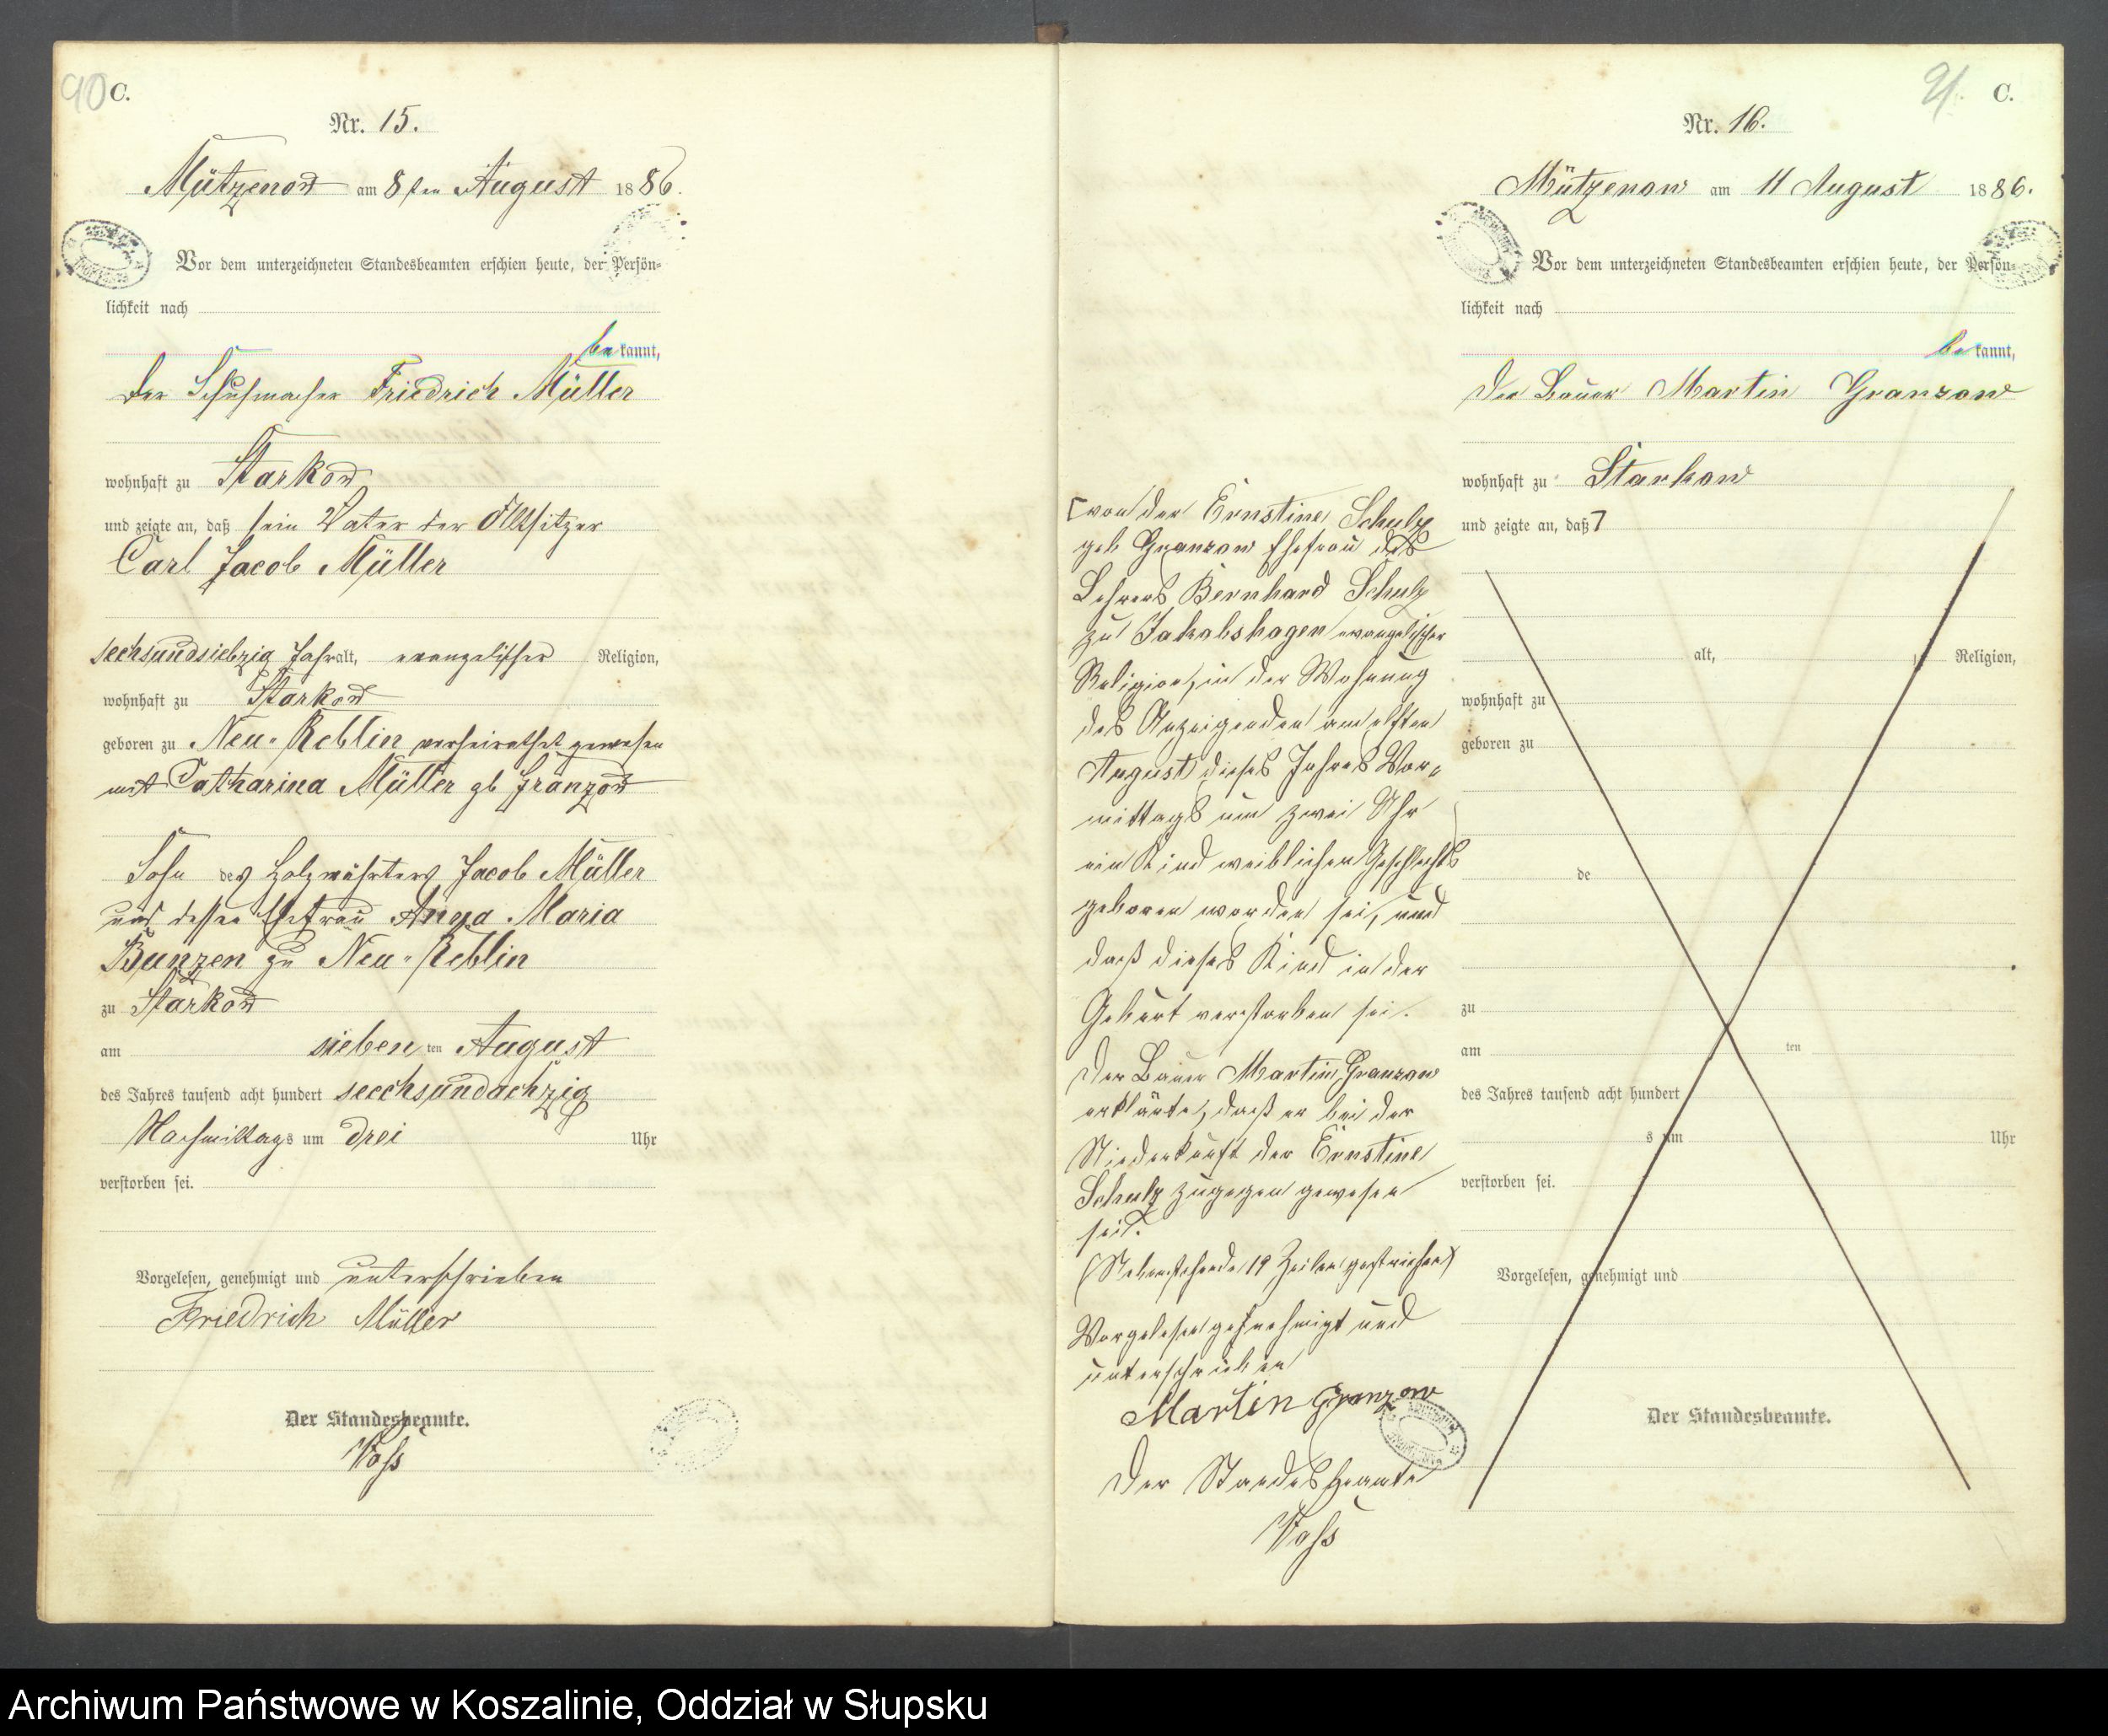 90 C.
Nr. 15.
Mützenow am 8ten August 1886.
Vor dem unterzeichneten Standesbeamten erschien heute, der Persön-
lichkeit nach
bekannt,
der Schuhmacher Friedrich Müller
wohnhaft zu Starkow
und zeigte an, daß sein Vater der Altsitzer
Carl Jacob Müller
sechsundsiebzig Jahr alt, evangelischer Religion,
wohnhaft zu Starkow
geboren zu Neu-Reblin verheirathet gewesen
mit Catharina Müller gb Granzow
Sohn des Holzwährters Jacob Müller
und dessen Ehefrau Anna Maria
Bunzen zu Neu-Reblin
zu Starkow
am siebenten August
des Jahres tausend acht hundert seechsundachzig
Nachmittags um drei Uhr
verstorben sei.
Vorgelesen, genehmigt und unterschrieben
Friedrich Müller
Der Standesbeamte.
Voß
91. C.
Nr. 16.
Mützenow am 11 August 1886.
Vor dem unterzeichneten Standesbeamten erschien heute, der Persön-
lichkeit nach
bekannt,
der Bauer Martin Granzow
wohnhaft zu Starkow
und zeigte an, daß
alt, Religion,
wohnhaft zu
geboren zu
de
zu
am ten
des Jahres tausend acht hundert
s um Uhr
verstorben sei.
Vorgelesen, genehmigt und
Der Standesbeamte.
von der Ernstine Schulz
geb Granzow Ehefrau des
Lehrers Bernhard Schulz
zu Jakobshagen evangelischer
Religion, in der Wohnung
des Anzeigenden am elften
August dieses Jahres Vor-
mittags um zwei Uhr
ein Kind weiblichen Geschlechts
geboren worden sei, und
daß dieses Kind in der
Geburt verstorben sei.
Der Bauer Martin Granzow
erklärte, daß er bei der
Niederkunft der Ernstine
Schulz zugegen gewesen
sei.
(Nebenstehende 19 Zeilen gestrichen)
Vorgelesen genehmigt und
unterschrieben
Martin Granzow
Der Standesbeamte
Voß
Archiwum Państwowe w Koszalinie, Oddział w Słupsku